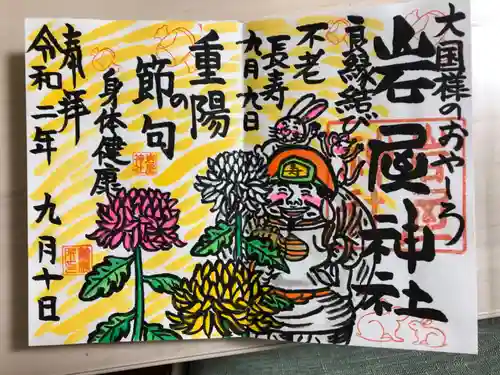 大国様のおやしろ
岩屋神社
良縁結び
不老
長寿
九月九日
重陽
の
節句
身体健康
奉拝
令和二年 九月十日
寿